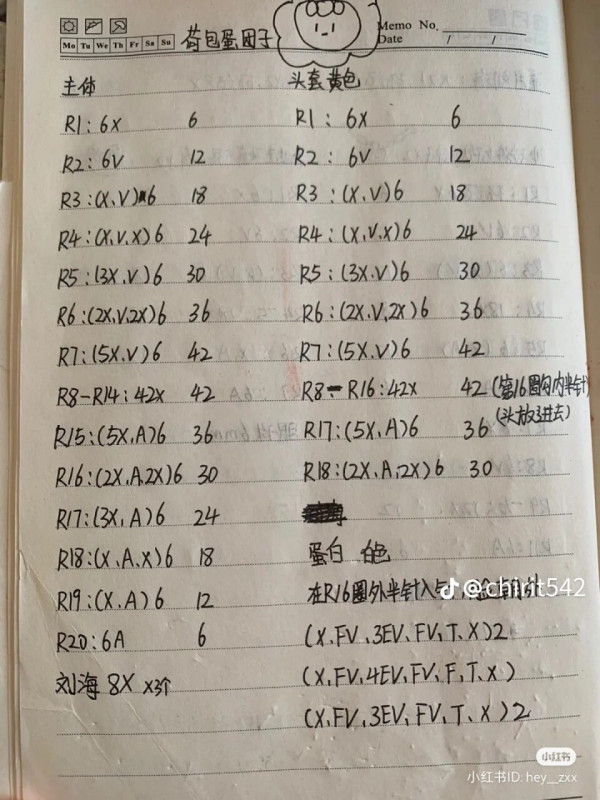 荷包蛋团子
Memo No.
Mo Tu We Th Fr Sa Su
Date / /
主体
R1: 6X 6
R2: 6V 12
R3:(X,V)6 18
R4:(X,V,X)6 24
R5:(3X,V)6 30
R6:(2X,V,2X)6 36
R7:(5X,V)6 42
R8-R14: 42X 42
R15:(5X,A)6 36
R16:(2X,A,2X)6 30
R17:(3X,A)6 24
R18:(X,A,X)6 18
R19:(X,A)6 12
R20:6A 6
刘海 8X X3个
头套黄色
R1: 6X 6
R2: 6V 12
R3:(X,V)6 18
R4:(X,V,X)6 24
R5:(3X,V)6 30
R6:(2X,V,2X)6 36
R7:(5X,V)6 42
R8-R16:42X 42 (第16圈勾内半针)
(头放进去)
R17:(5X,A)6 36
R18:(2X,A,2X)6 30
蛋白 白色
在R16圈外半针入
(X,FV,3EV,FV,T,X)2
(X,FV,4EV,FV,F,T,X)
(X,FV,3EV,FV,T,X)2
@chart542
小红书
小红书ID: hey__zxx